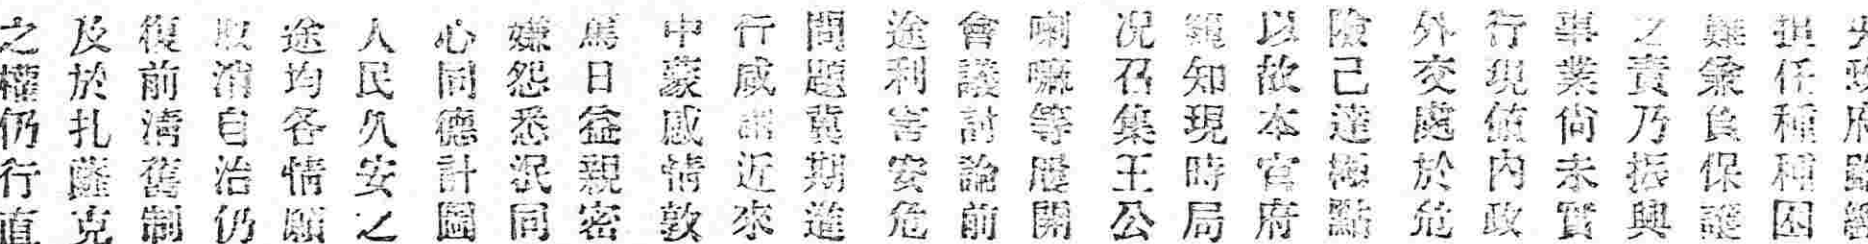 担任種種困
難兼負保護
之責乃振興
事業尙未實
行現値內政
外交處於危
險己達極點
以故本官府
窺知現時局
况召集王公
喇嘛等屢開
會議討論前
途利害安危
問題冀期進
行咸謂近來
中蒙感情敦
篤日益親密
嫌怨悉泯同
心同德計圖
人民久安之
途均各情願
取消自治仍
復前淸舊制
及於扎薩克
之權仍行直